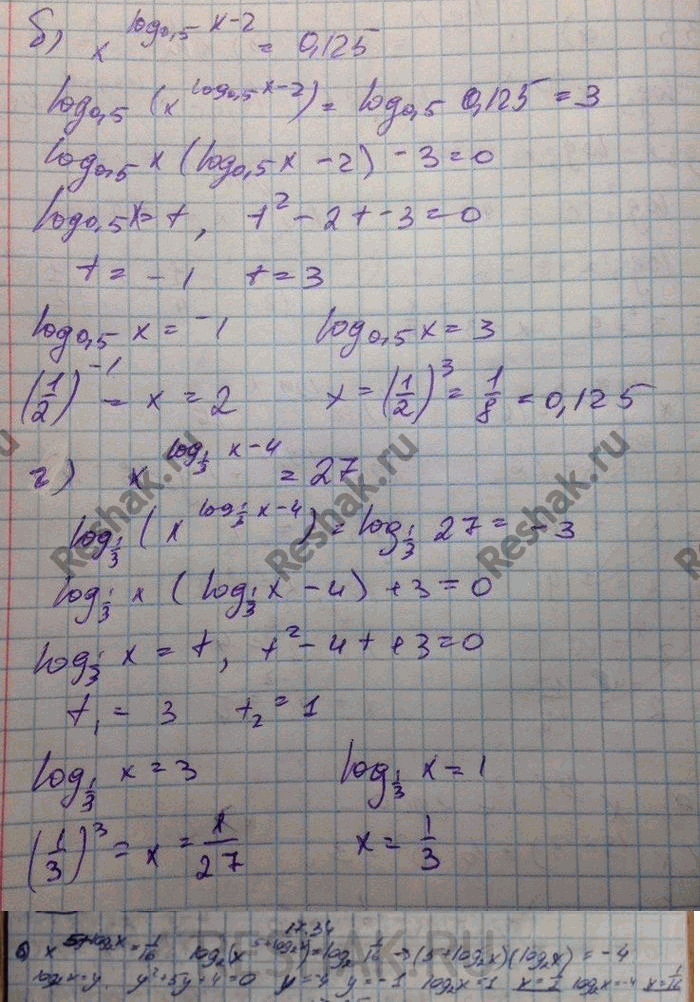 б) x^(log_0,5 x-2) = 0,125
log_0,5 (x^(log_0,5 x-2)) = log_0,5 0,125 = 3
log_0,5 x (log_0,5 x - 2) - 3 = 0
log_0,5 x = t, t² - 2t - 3 = 0
t = -1 t = 3
log_0,5 x = -1 log_0,5 x = 3
(1/2)^-1 = x = 2 x = (1/2)^3 = 1/8 = 0,125
г) x^(log_1/3 x-4) = 27
log_1/3 (x^(log_1/3 x-4)) = log_1/3 27 = -3
log_1/3 x (log_1/3 x - 4) + 3 = 0
log_1/3 x = t, t² - 4t + 3 = 0
t₁ = 3 t₂ = 1
log_1/3 x = 3 log_1/3 x = 1
(1/3)^3 = x = 1/27 x = 1/3
Reshak.ru Reshak.ru Reshak.ru
17.34
x^(5+log₂x) = 1/16 log₂(x^(5+log₂x)) = log₂ 1/16 → (5+log₂x)(log₂x) = -4
log₂x = y y²+5y+4=0 y=-4 y=-1 log₂x=1 x=1/2 log₂x=-4 x=1/16
RESHAK.RU